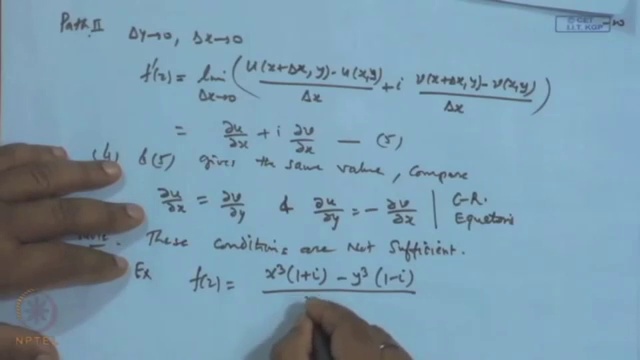 Path II Δy→0, Δx→0
f'(z) = lim Δx→0 ( u(x+Δx, y) - u(x,y) / Δx + i v(x+Δx, y) - v(x,y) / Δx )
= ∂u/∂x + i ∂v/∂x — (5)
(4) & (5) gives the same value, compare
∂u/∂x = ∂v/∂y & ∂u/∂y = - ∂v/∂x | C-R. Equations
Note. These conditions are Not Sufficient.
Ex f(z) = x³(1+i) - y³(1-i)
© CET
I.I.T. KGP
NPTEL